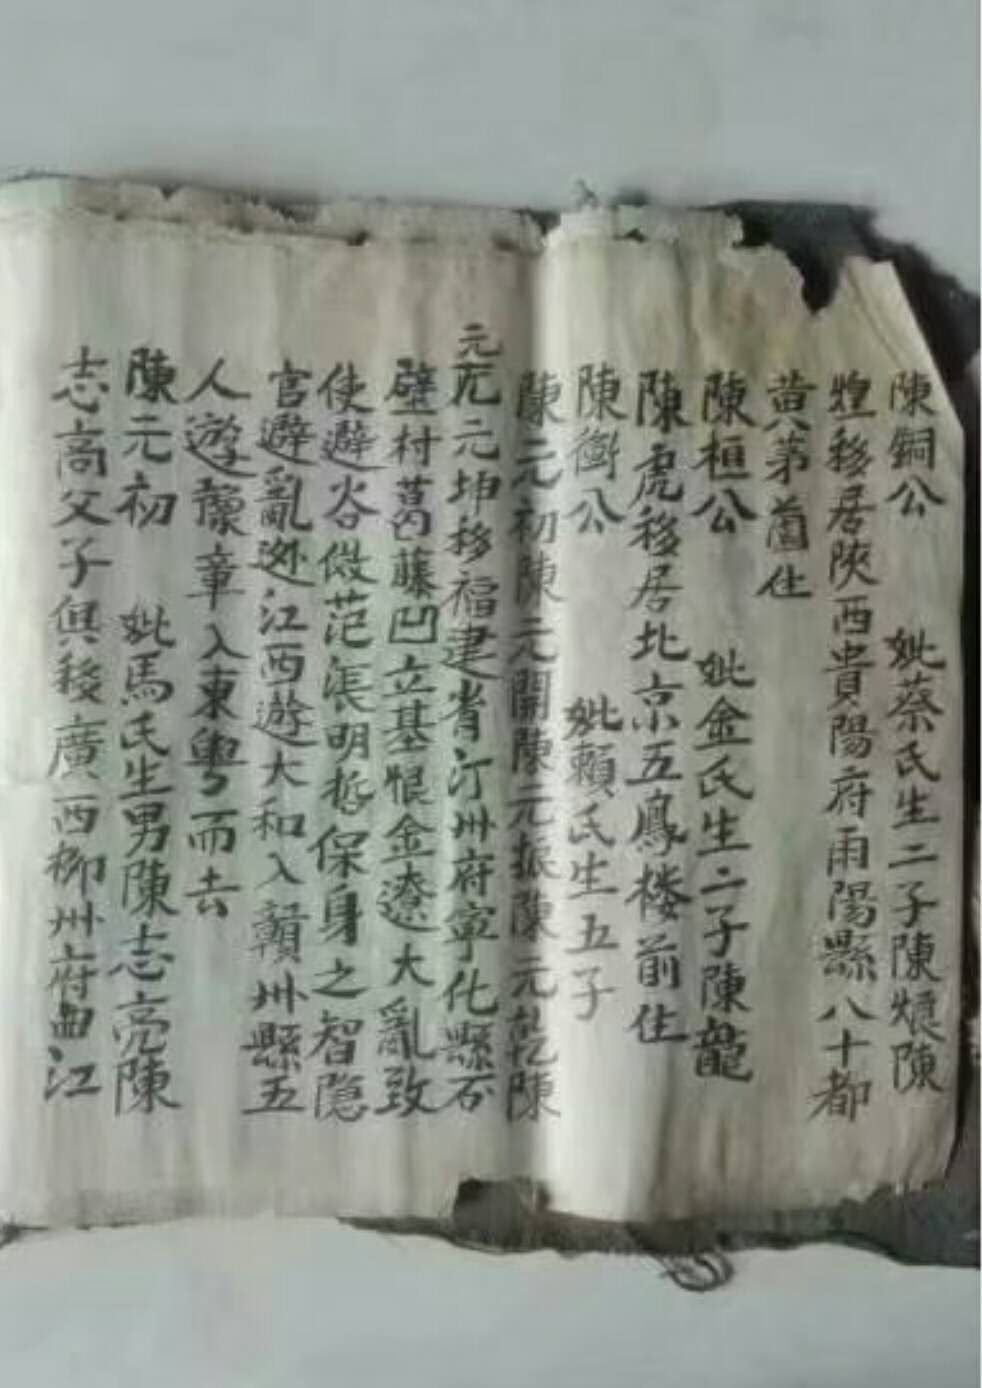 陳銅公 妣蔡氏生二子陳烺陳
煌移居陝西貴陽府雨陽縣八十都
黄八茅茵住
陳桓公 妣金氏生二子陳龍
陳虎移居北京五鳳楼前住
陳衡公 妣賴氏生五子
陳元初陳元開陳元振陳元乾陳
元元坤移福建省汀州府寧化縣石
壁村葛藤凹立基恨金遼大亂致
使避谷傚范漲明哲保身之智隐
官避亂逊江西遊大和入贛州縣五
人遊豫章入東粤而去
陳元初 妣馬氏生男陳志亮陳
志高父子俱移廣西柳州府曲江